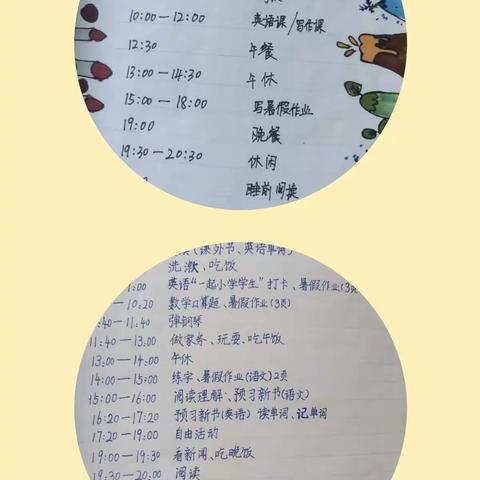 10:00—12:00 英语课/写作课
12:30 午餐
13:00—14:30 午休
15:00—18:00 写暑假作业
19:00 晚餐
19:30—20:30 休闲
睡前阅读
(课外书、英语单词)
洗漱、吃饭
:00 英语“一起小学学生”打卡、暑假作业(3页
—10:20 数学口算题、暑假作业(3页)
:40—11:40 弹钢琴
11:40—13:00 做家务、玩耍、吃午饭
13:00—14:00 午休
14:00—15:00 练字、暑假作业(语文)2页
15:00—16:00 阅读理解、预习新书(语文)
16:20—17:20 预习新书(英语) 读单词、记单词
17:20—19:00 自由活动
19:00—19:30 看新闻、吃晚饭
19:30—20:00 阅读